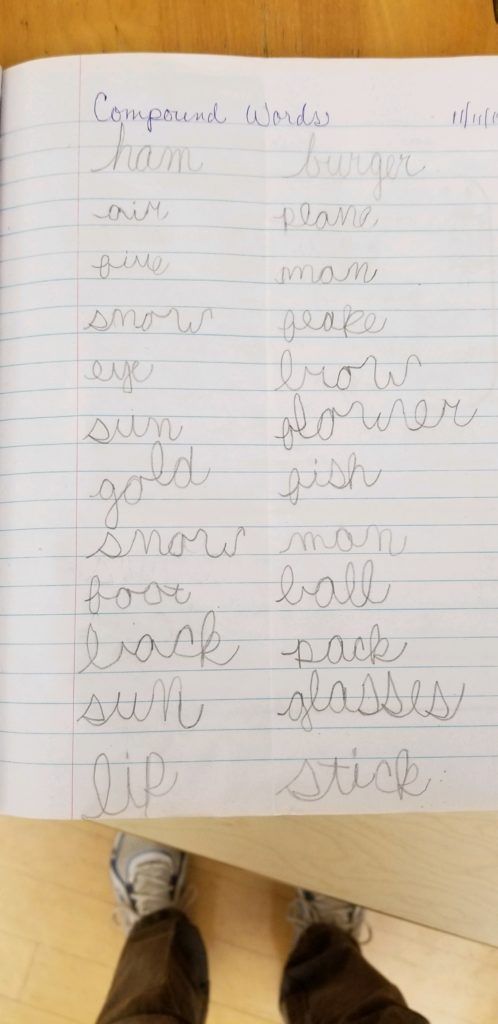 Compound Words 11/11/1
ham burger
air plane
five man
snow fleake
eye brow
sun flower
gold fish
snow man
foot ball
back pack
sun glasses
lip stick